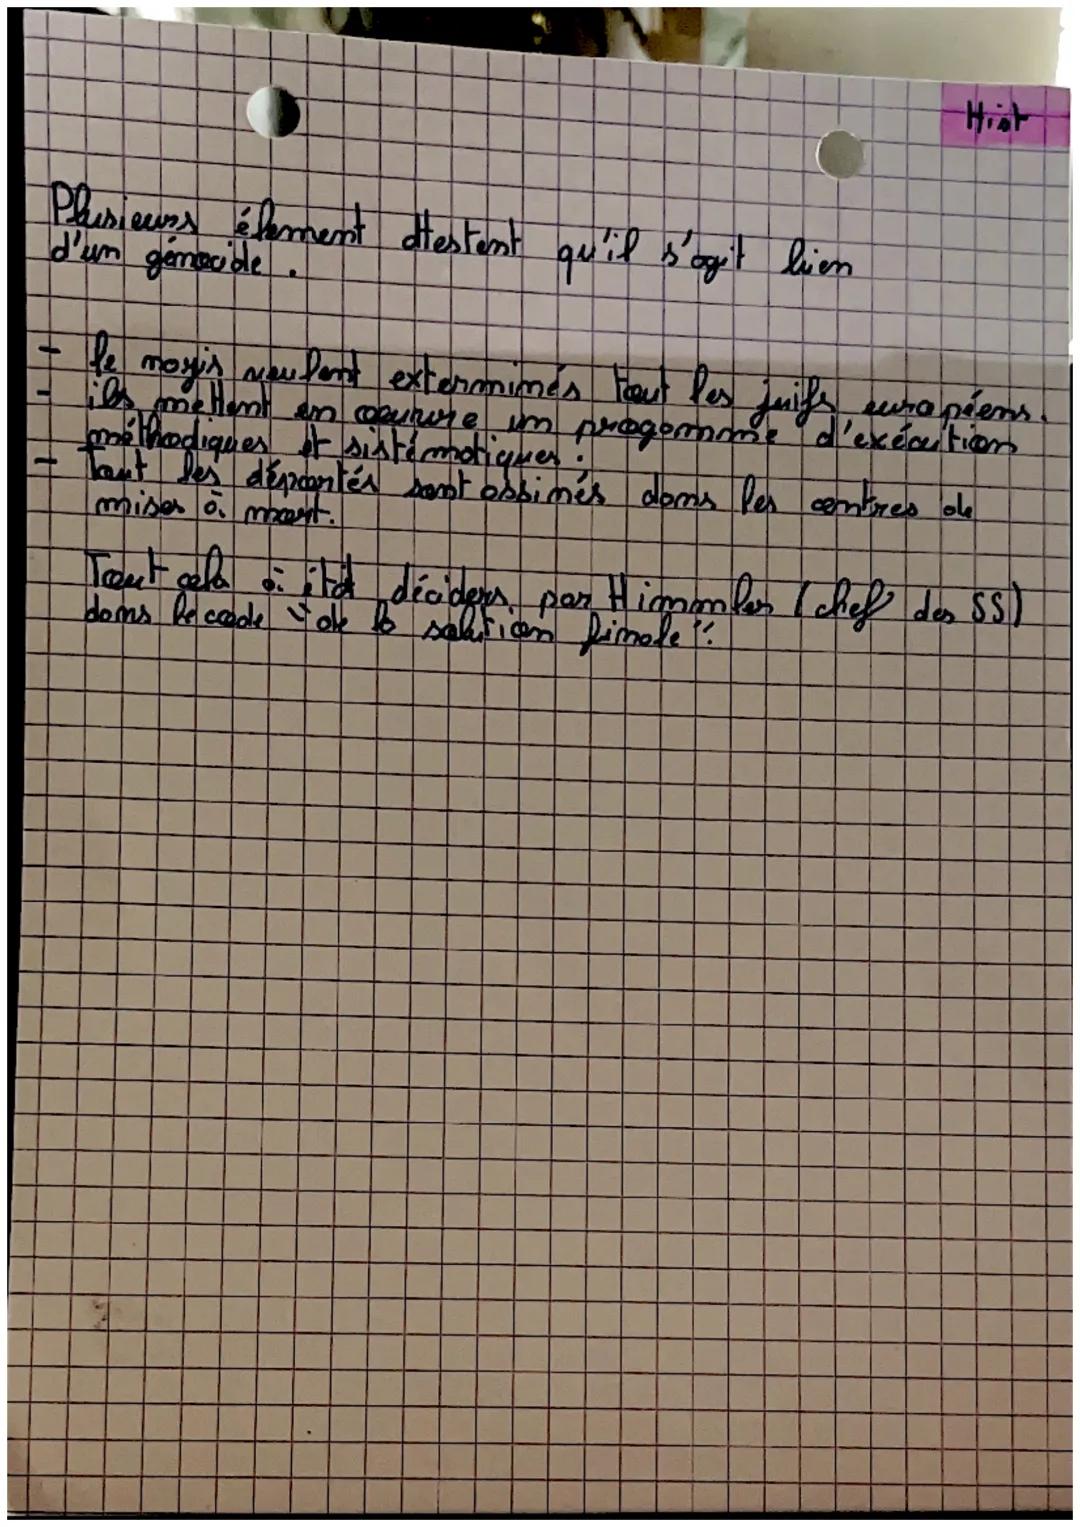 Hist
Plusieurs élement attestent qu'il s'agit bien
d'un génocide.
- le nazis veulent exterminés tout les juifs européens.
- ils mettent en coeuvre un progamme d'exécution
méthodiques et sistématiques.
- tout les déportés sont assimés dans les centres de
mises à mort.
Tout cela à était déciders par Himmler (chef des SS)
dans le code "de la solution finale".